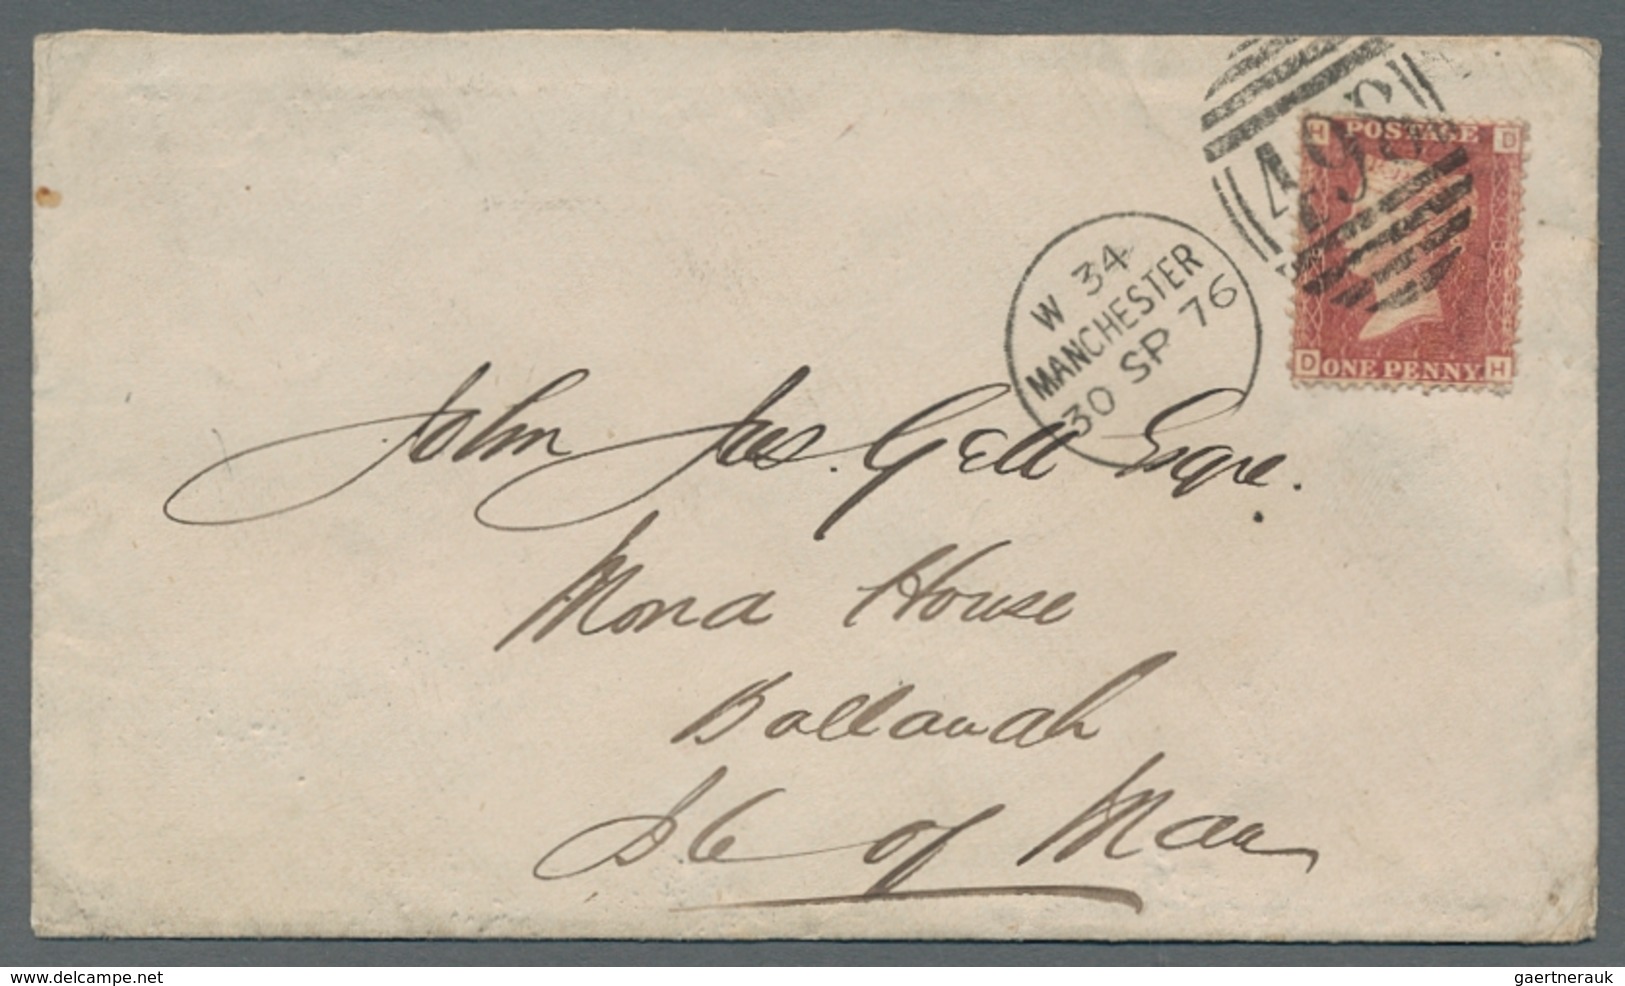 498
H POSTAGE D
D ONE PENNY. H
W 34
MANCHESTER
30 SP 76
John Jas. Gell Esqre.
Mona House
Ballaugh
Isle of Man
www.delcampe.net
gaertnerauk